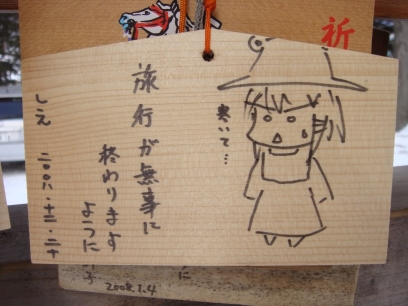 祈
寒いて…
旅行が無事に
終わります
ように
しえ 二〇〇八・十二・二十
に
2008.1.4